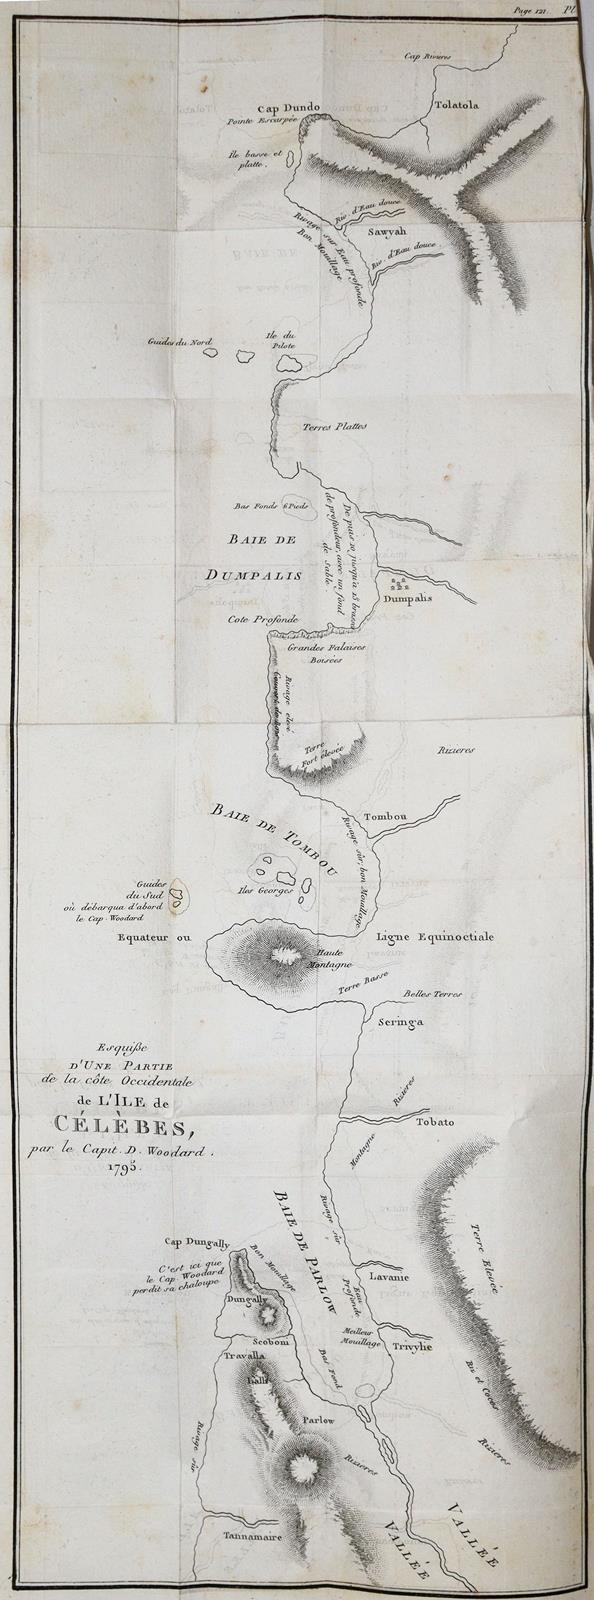 Page 121. Pl
Cap Rivieres
Cap Dundo
Tolatola
Pointe Escarpée
Ile basse et
platte.
Riv. d'Eau douce
Sawyah
Rivage sûr Eau profonde
Bon Mouillage
Riv. d'Eau douce
Guides du Nord
Ile du
Pilote
Terres Plattes
Bas Fonds 6 Pieds
BAIE DE
DUMPALIS
De puis 10 jusqu'a 15 brasses
de profondeur, avec un fond
de Sable.
Dumpalis
Cote Profonde
Grandes Falaises
Boisées
Rivage elevé
Couvert de Bois
Terre
Fort élevée
Rizieres
BAIE DE TOMBOU
Tombou
Rivage sûr, bon Mouillage
Iles Georges
Guides
du Sud
où débarqua d'abord
le Cap. Woodard
Equateur ou
Ligne Equinoctiale
Haute
Montagne
Terre Basse
Belles Terres
Seringa
Esquiße
D'UNE PARTIE
de la côte Occidentale
de L'ILE de
CÉLÈBES,
par le Capit. D. Woodard.
1795.
Rizieres
Tobato
Montagne
Rivage sûr
BAIE DE PARLOW
Cap Dungally
Bon Mouillage
C'est ici que
le Cap. Woodard
perdit sa chaloupe
Lavanie
Eau
Profonde
Terre Elevée
Dungally
Meilleur
Mouillage
Trivyhe
Scoboni
Travalla
Bas Fond
Ris et Cocos
Lalli
Parlow
Rivage sûr
Rizieres
Rizieres
Tannamaire
VALLÉE
VALLÉE